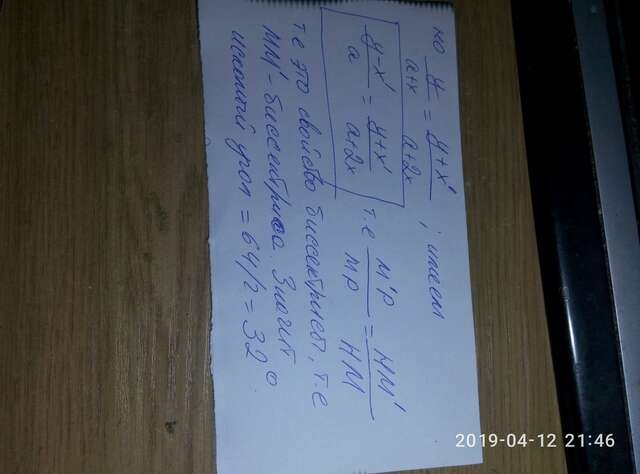 но y/(a+x) = (y+x')/(a+2x) ; имеем
(y-x')/a = (y+x')/(a+2x) т.е M'P/MP = HM'/HM
т.е это свойство биссектрисы, т.е
MM' - биссектриса. Значит
искомый угол = 64/2 = 32°.
2019-04-12 21:46